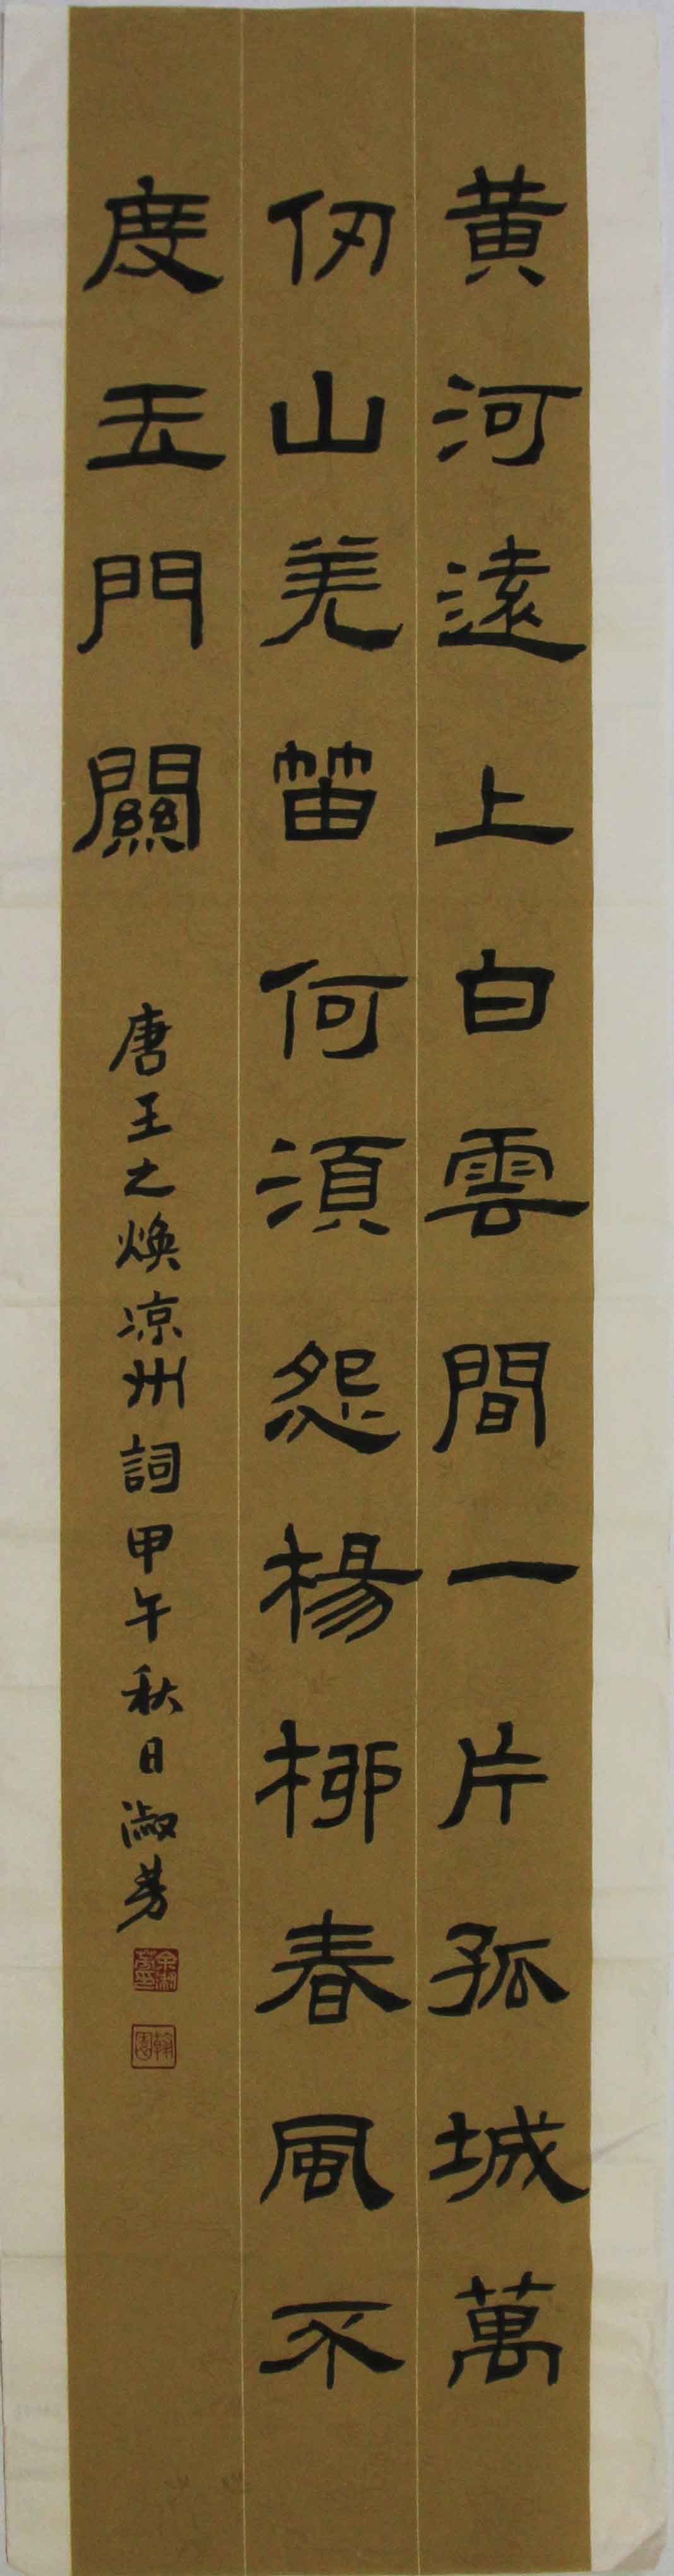 黄河遠上白雲間一片孤城萬
仞山羌笛何須怨楊柳春風不
度玉門關
唐王之焕凉州詞甲午秋日淑芳
余淑芳印
翰園